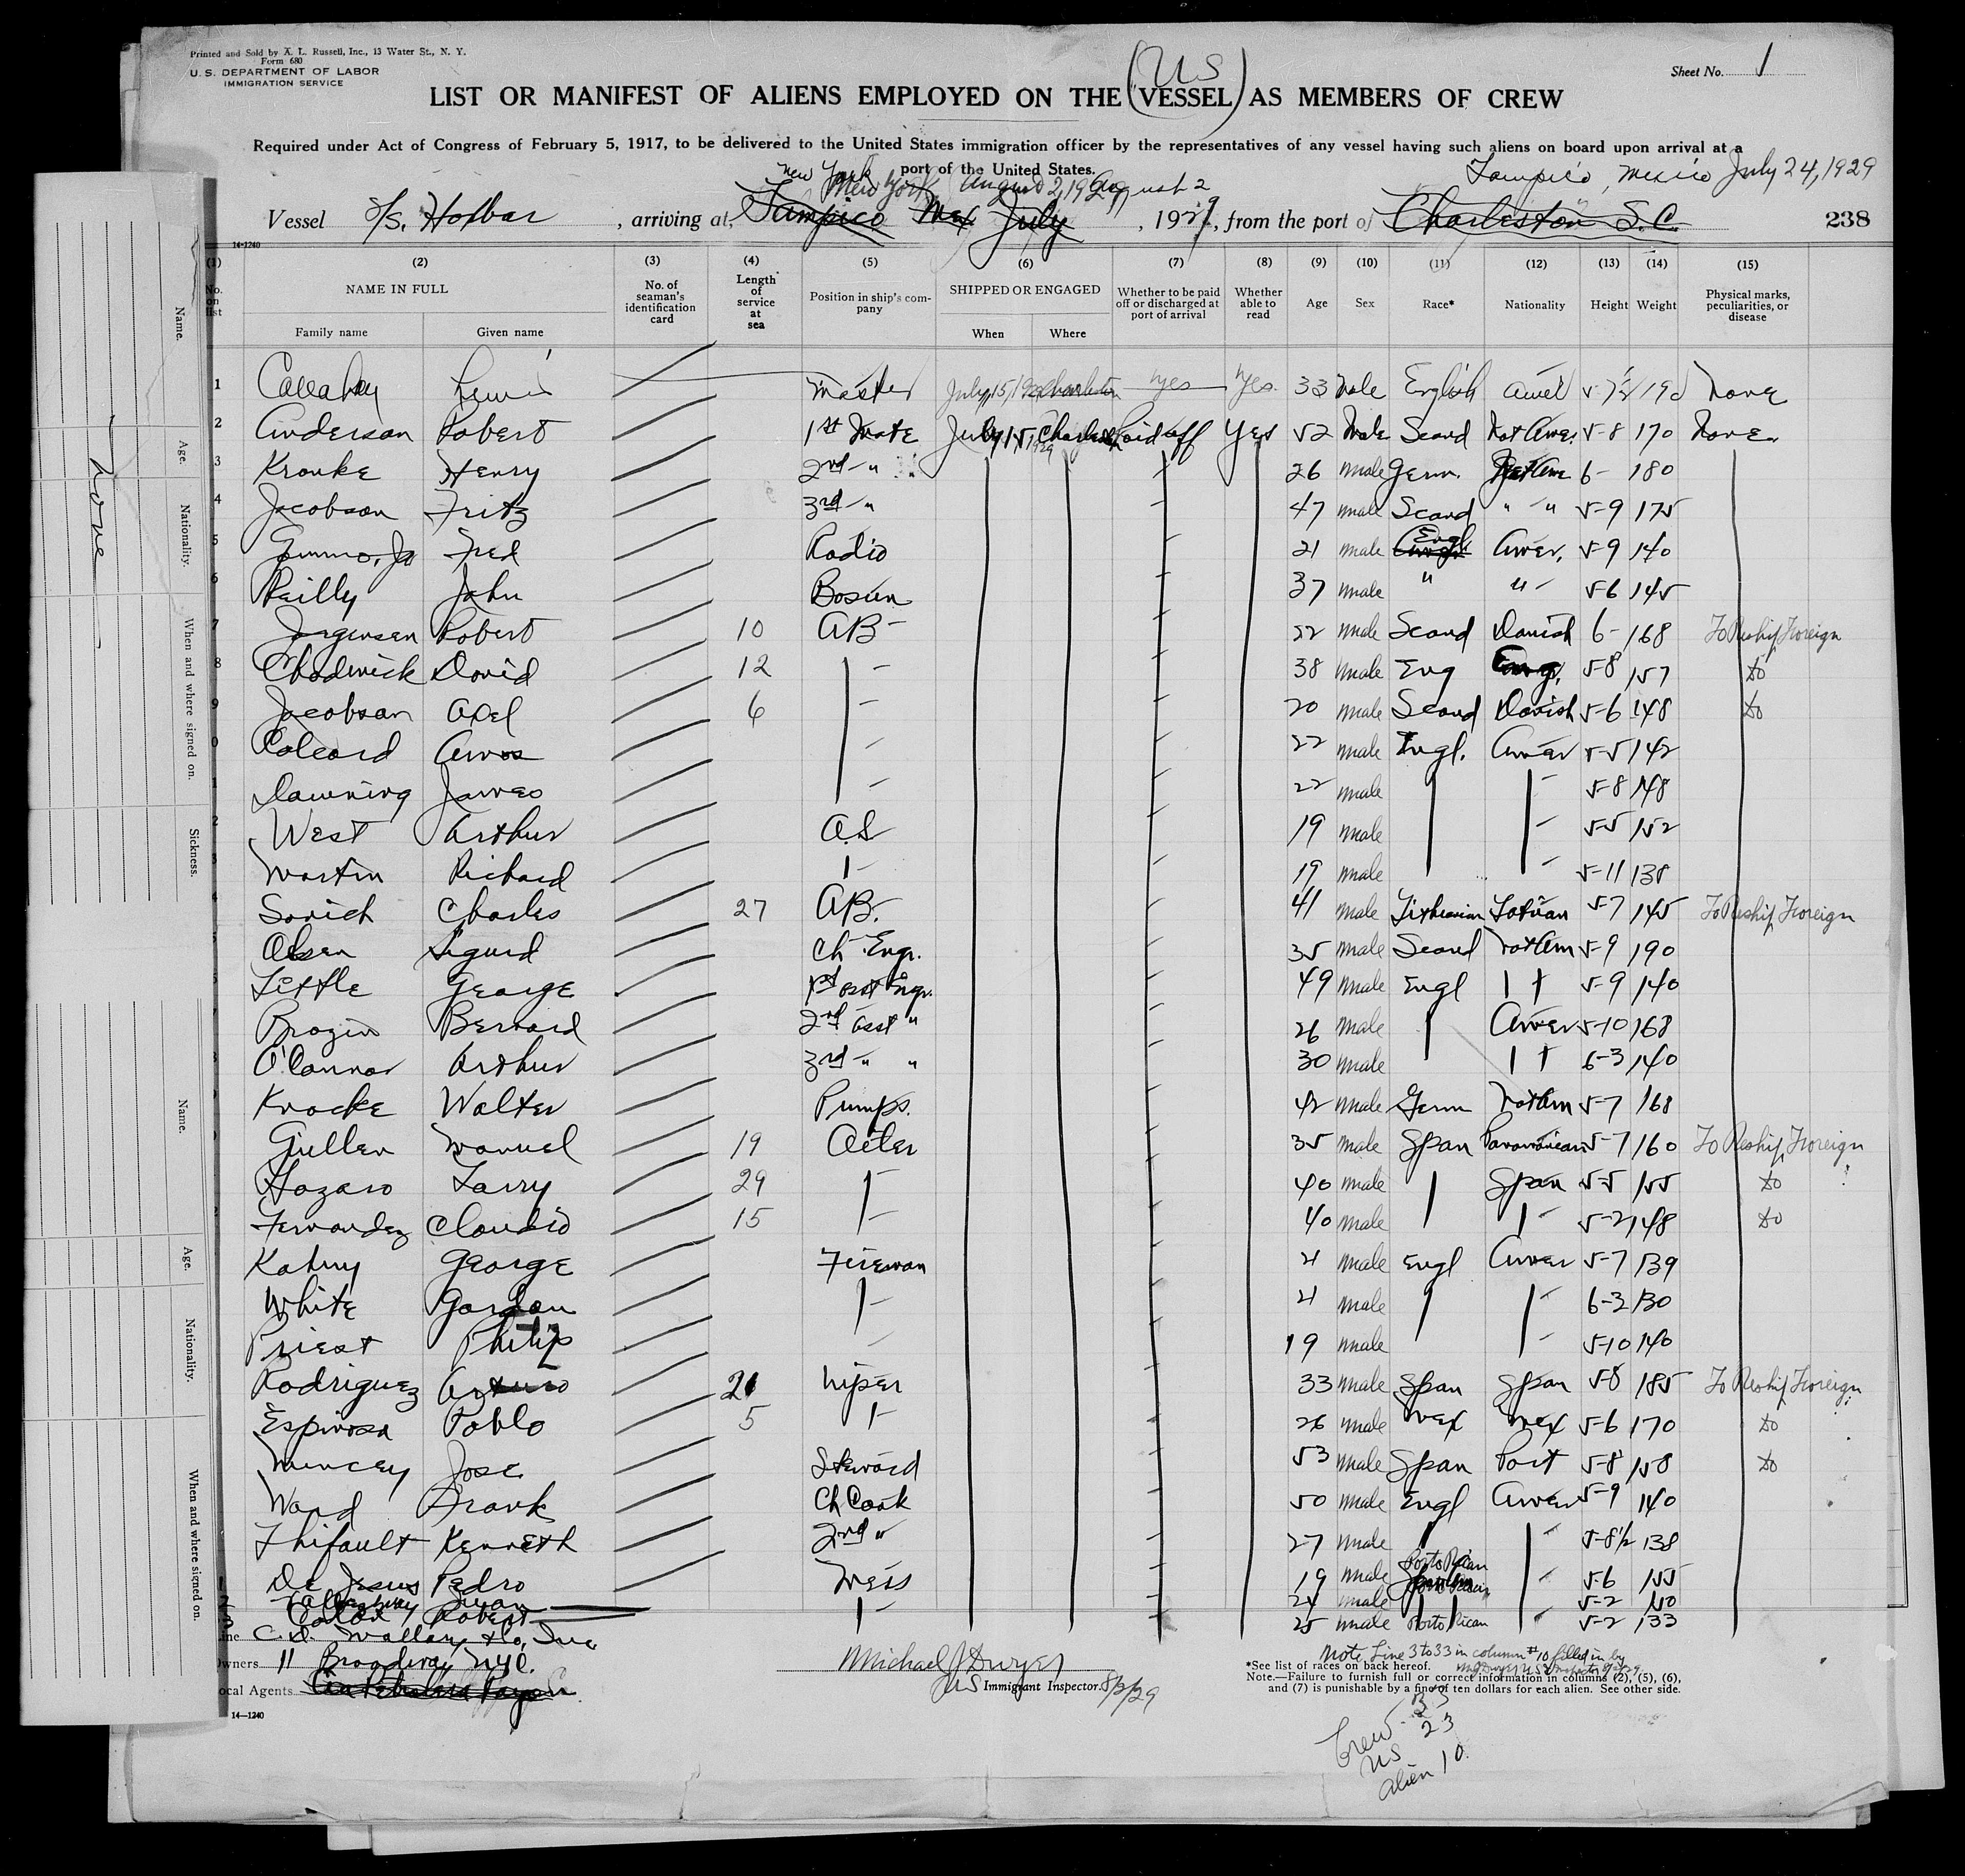 Printed and Sold by A. L. Russell, Inc., 13 Water St., N. Y.
Form 680
U. S. DEPARTMENT OF LABOR
IMMIGRATION SERVICE
Sheet No. 1
(US)
LIST OR MANIFEST OF ALIENS EMPLOYED ON THE (VESSEL) AS MEMBERS OF CREW
Required under Act of Congress of February 5, 1917, to be delivered to the United States immigration officer by the representatives of any vessel having such aliens on board upon arrival at a
port of the United States.
New York
New York August 2, 1929 August 2
Tampico, Mexico July 24, 1929
Vessel S/S. Hoxbar, arriving at, Tampico Mex July, 1929, from the port of Charleston S.C. 238
14-1240
(1) (2) (3) (4) (5) (6) (7) (8) (9) (10) (11) (12) (13) (14) (15)
No. on list NAME IN FULL Family name Given name No. of seaman's identification card Length of service at sea Position in ship's company SHIPPED OR ENGAGED When Where Whether to be paid off or discharged at port of arrival Whether able to read Age Sex Race* Nationality Height Weight Physical marks, peculiarities, or disease
1 Callahay Lewis Master July 15, 1929 Charleston Yes Yes. 33 Male English Amer 5-7½ 190 None
2 Anderson Robert 1st Mate July 15, 1929 Charleston Paid off Yes 52 Male Scand Nat Amer. 5-8 170 None
3 Kronke Henry 2nd " " 26 male Germ. Nat Ame 6- 180
4 Jacobson Fritz 3rd " 47 male Scand " " 5-9 175
5 Fred Radio 21 male Engl Amer. 5-9 140
6 Reilly John Bosun 37 male " " 5-6 145
7 Jorgensen Robert 10 AB 22 male Scand Danish 6- 168 To Reship Foreign
8 Chadwick David 12 38 male Eng Eng. 5-8 157 do
9 Jacobson Axel 6 20 male Scand Danish 5-6 148 do
0 Colcord Amos 22 male Engl. Amer 5-5 142
1 Downing James 22 male 5-8 148
2 West Arthur O.S 19 male 5-5 152
3 Martin Richard 19 male 5-11 138
4 Sovich Charles 27 AB. 41 male Lithuanian Latvian 5-7 145 To Reship Foreign
5 Olsen Sigurd Ch Engr. 35 male Scand Nat Am 5-9 190
6 Little George 1st asst Engr. 49 male Engl 5-9 140
7 Brazin Bernard 2nd Asst " 26 male Amer 5-10 168
8 O'Connor Arthur 3rd " " 30 male 6-3 140
9 Knocke Walter Pumps. 42 male Germ Nat Am 5-7 168
0 Guillen Manuel 19 Oiler 35 male Span Panamanian 5-7 160 To Reship Foreign
Hazaro Larry 29 40 male Span 5-5 155 do
Fernandez Claudio 15 40 male 5-2 148 do
George Fireman 21 male Engl Amer 5-7 139
White Gordon 21 male 6-2 130
Priest Philip 19 male 5-10 140
Rodriguez Arturo 21 Wiper 33 male Span Span 5-8 185 To Reship Foreign
Espinosa Pablo 5 26 male Mex Mex 5-6 170 do
Muncey Jose Steward 53 male Span Port 5-8 158 do
Ward Frank Ch Cook 50 male Engl Amer 5-9 140
Thifault Kenneth 2nd " 27 male 5-8½ 138
1 De Jesus Pedro Mess 19 male Porto Rican 5-6 155
2 Juan 24 male 5-2 110
3 Colon Robert 25 male Porto Rican 5-2 133
Line C. D. Mallory & Co, Inc
Owners 11 Broadway NYC.
Local Agents
14—1240
Michael J Dwyer
US Immigrant Inspector. 8/2/29
Note Line 3 to 33 in column #10 filled in by
*See list of races on back hereof.
Note.—Failure to furnish full or correct information in columns (2), (5), (6),
and (7) is punishable by a fine of ten dollars for each alien. See other side.
Crew - 33
US 23
Alien 10
Name.
Age.
Nationality.
When and where signed on.
Sickness.
None
Name.
Age.
Nationality.
When and where signed on.